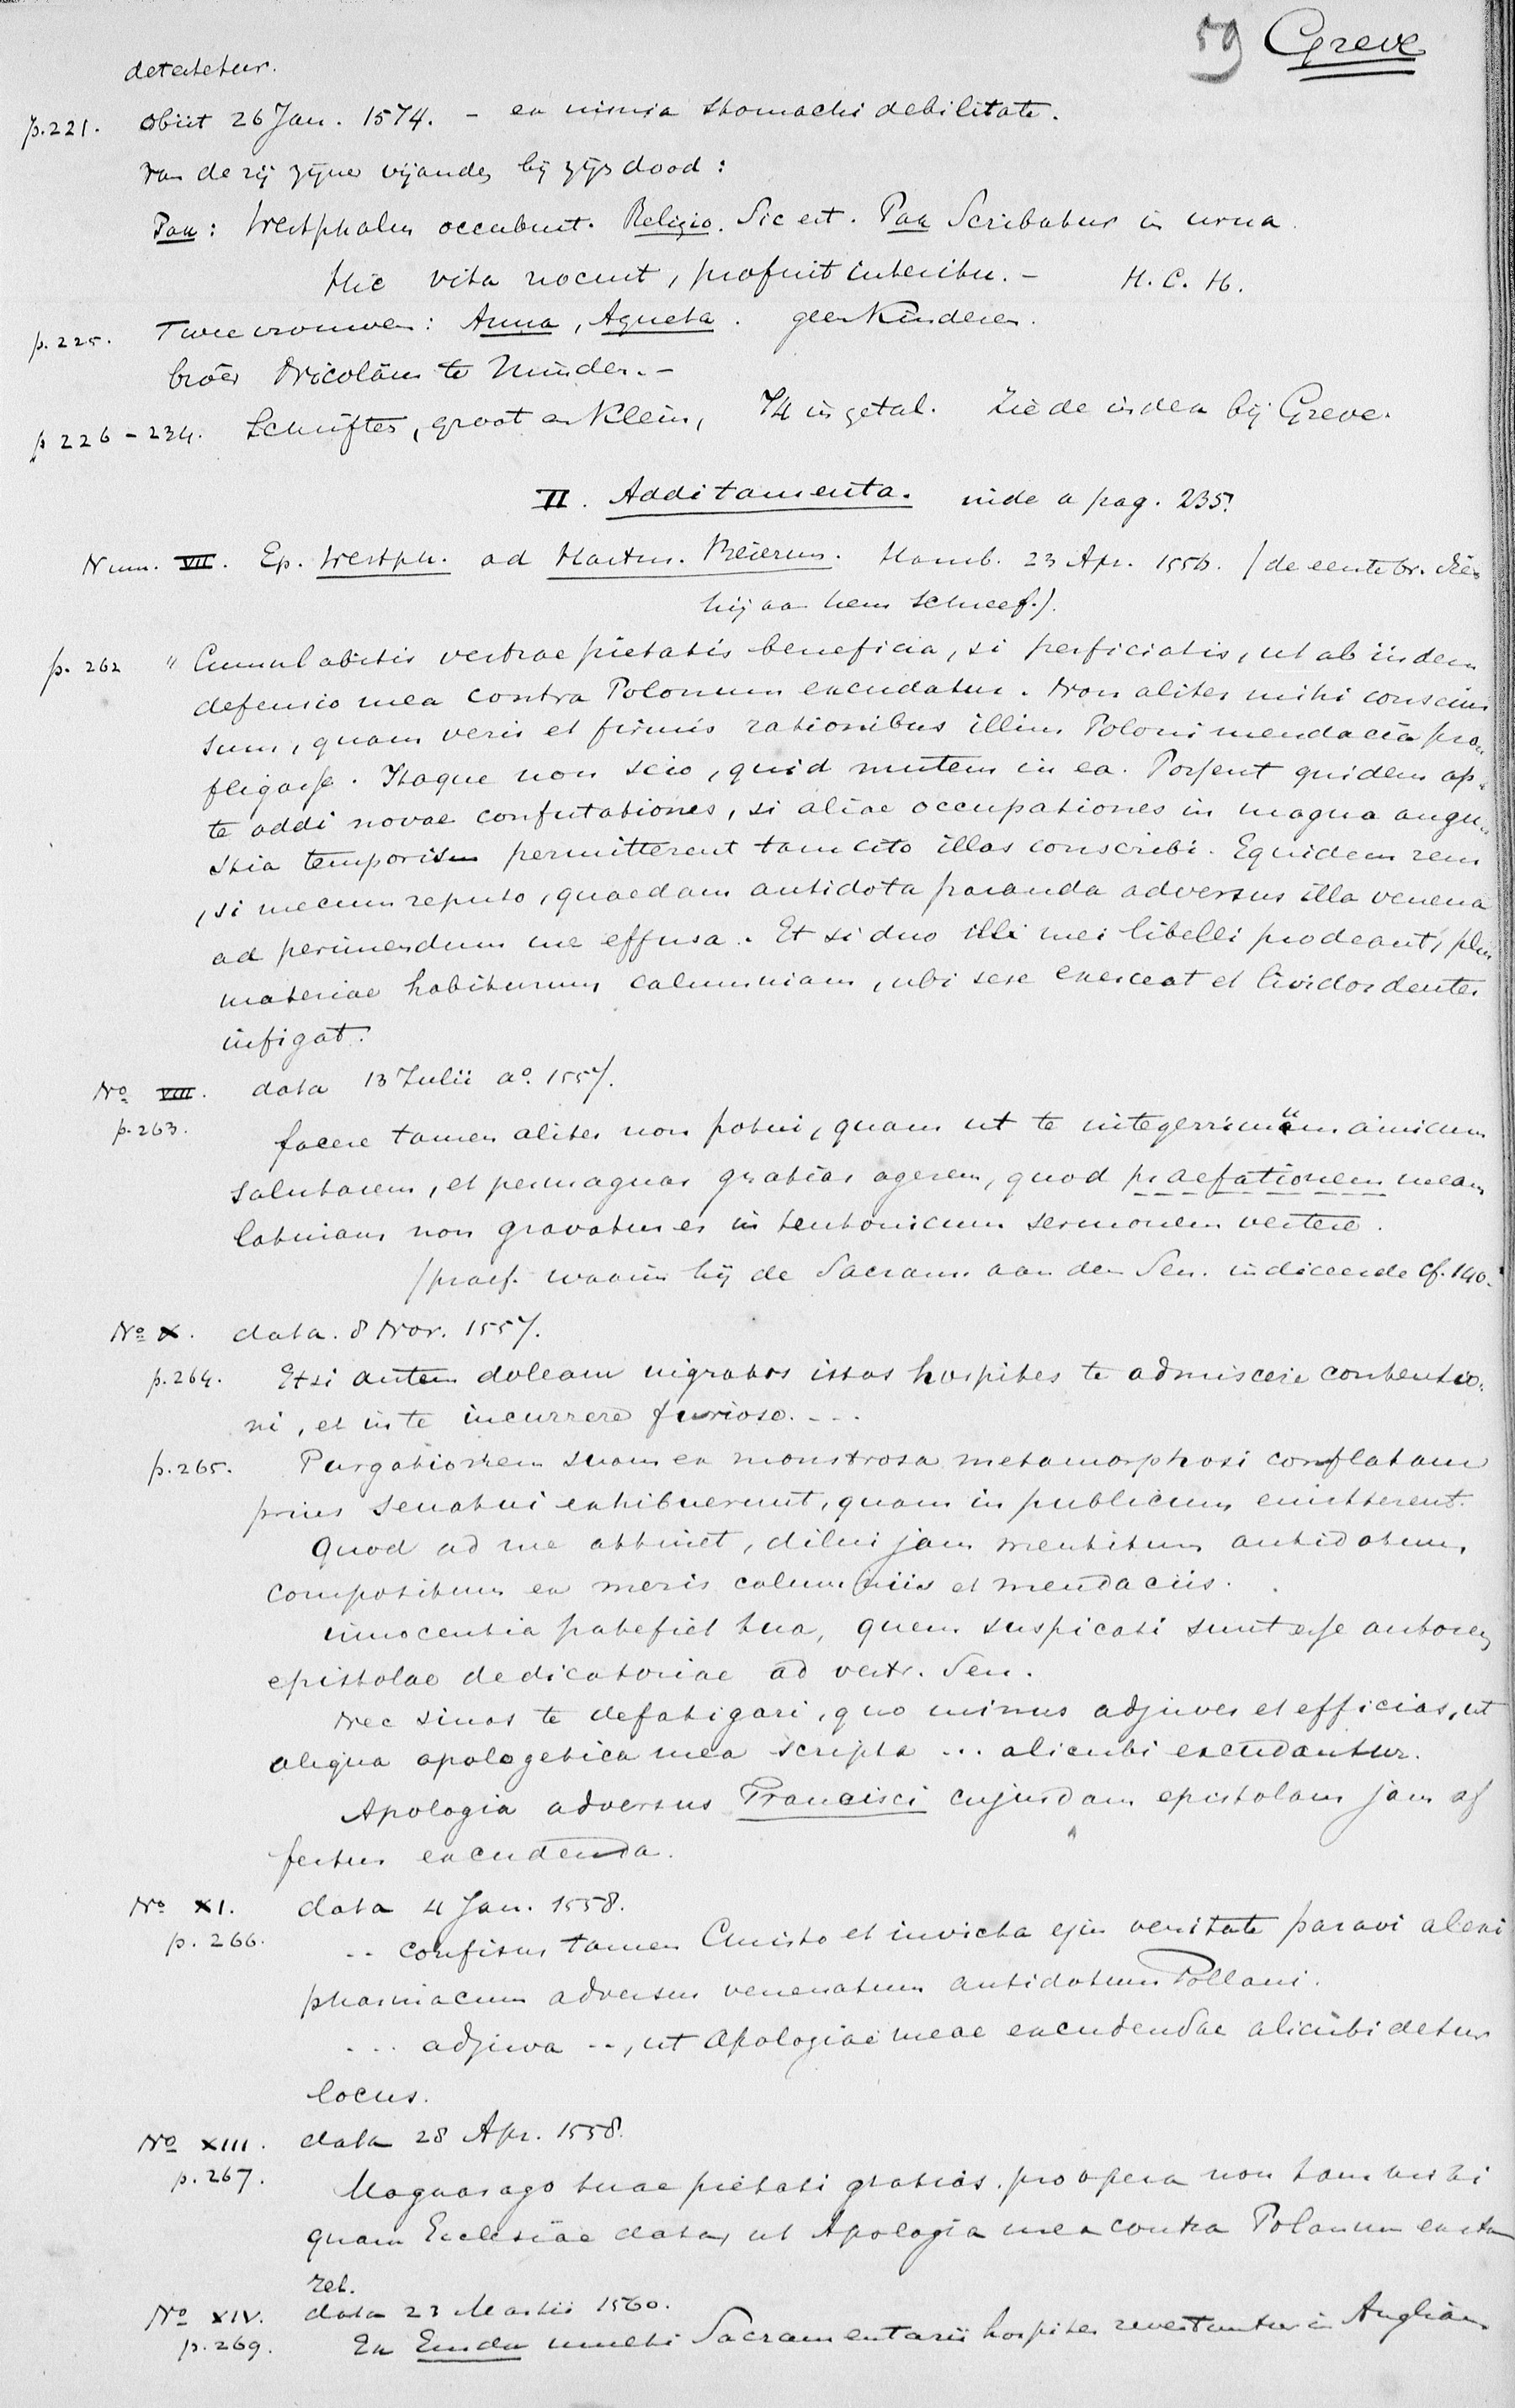 59 Greve
detestetur.
p. 221. obiit 26 Jan. 1574. - ex nimia stomachi debilitate.
van de zij zijner vijanden bij zijn dood:
Pax: Westphalus occubuit. Religio. Sic est. Pax Scribatur in urna.
Hic vita nocuit, profuit interitu. - H. C. H.
p. 225. Twee vrouwen: Anna, Agneta. geen Kinderen.
broer Nicolaus te Minden. -
p 226 - 234. Schriften, groot en Klein, 74 in getal. Zie de index bij Greve.
II. Additamenta. inde a pag. 235.
Num. VII. Ep. Westph. ad Hartm. Beierum. Hamb. 23 Apr. 1556. (de eerste br. dien
hij aan hem schreef.).
p. 262 " Cumulabitis vestrae pietatis beneficia, si perficiatis, ut ab iisdem
defensio mea contra Polonum excudatur. Non aliter mihi conscius
sum, quam veris et firmis rationibus illius Poloni mendacia pro„
fligasse. Itaque non scio, quid mutem in ea. Possent quidem ap„
te addi novae confutationes, si aliae occupationes in magna angu„
stia temporis permitterent tam cito illas conscribi. Equidem rem
, si mecum reputo, quaedam antidota paranda adversus illa venena
ad perimendum me effusa. Et si duo illi mei libelli prodeant, plus
materiae habituram calumniam, ubi sese exerceat et lividos dentes
infigat.
No VIII. data 13 Julii ao. 1557.
p. 263. facere tamen aliter non potui, quam ut te integerrimum amicum
salutarem, et permagnas gratias agerem, quod praefationem meam
latinam non gravatus es in teutonicum sermonem vertere.
(praef. waarin hij de Sacram. aan den Sen. indiceerde cf. 140.
No X. data. 8 Nov. 1557.
p. 264. Etsi autem doleam migratos istos hospites te admiscere contentio„
ni, et in te incurrere furiose. ---
p. 265. Purgationem suam ex monstrosa metamorphosi conflatam
prius senatui exhibuerunt, quam in publicum emitterent.
Quod ad me attinet, dilui jam mentitum antidotum,
compositum ex meris calumniis et mendaciis.
innocentia patefiet tua, quem suspicati sunt esse autorem
epistolae dedicatoriae ad vestr. Sen.
Nec sinas te defatigari, quo minus adjuves et efficias, ut
aliqua apologetica mea scripta ... alicubi excudantur.
Apologia adversus Francisci cujusdam epistolam jam af
fectus excudenda.
No XI. data 4 Jan. 1558.
p. 266. -- confisus tamen Christo et invicta ejus veritate paravi alexi
pharmacum adversus venenatum antidotum Pollani.
... adjuva --, ut Apologiae meae excudendae alicubi detur
locus.
No XIII. data 28 Apr. 1558.
p. 267. Magnas ago tuae pietati gratias. pro opera non tam mihi
quam Ecclesiae data, ut Apologia mea contra Polanum exsta
ret.
No XIV. data 23 Martii 1560.
p. 269. Ex Emda multi Sacramentarii hospites revertuntur in Angliam